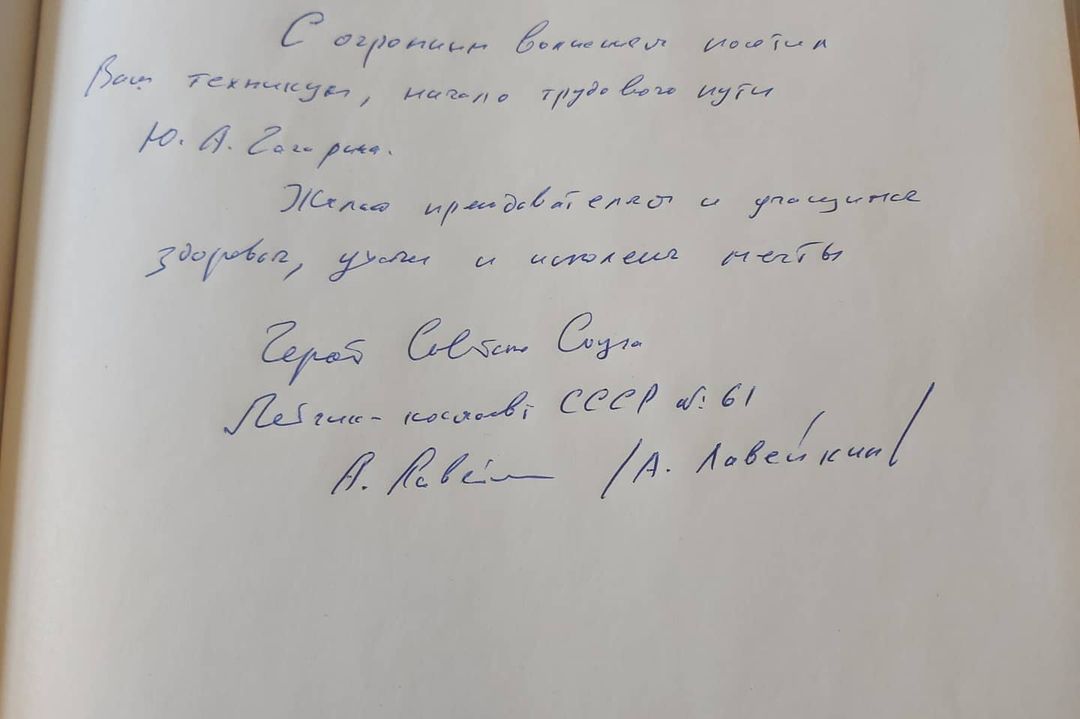 С огромным волнением посетил
Ваш техникум, начало трудового пути
Ю. А. Гагарина.
Желаю преподавателям и учащимся
здоровья, удачи и исполнения мечты
Герой Советского Союза
Летчик-космонавт СССР № 61
А. Лавейкин /А. Лавейкин/